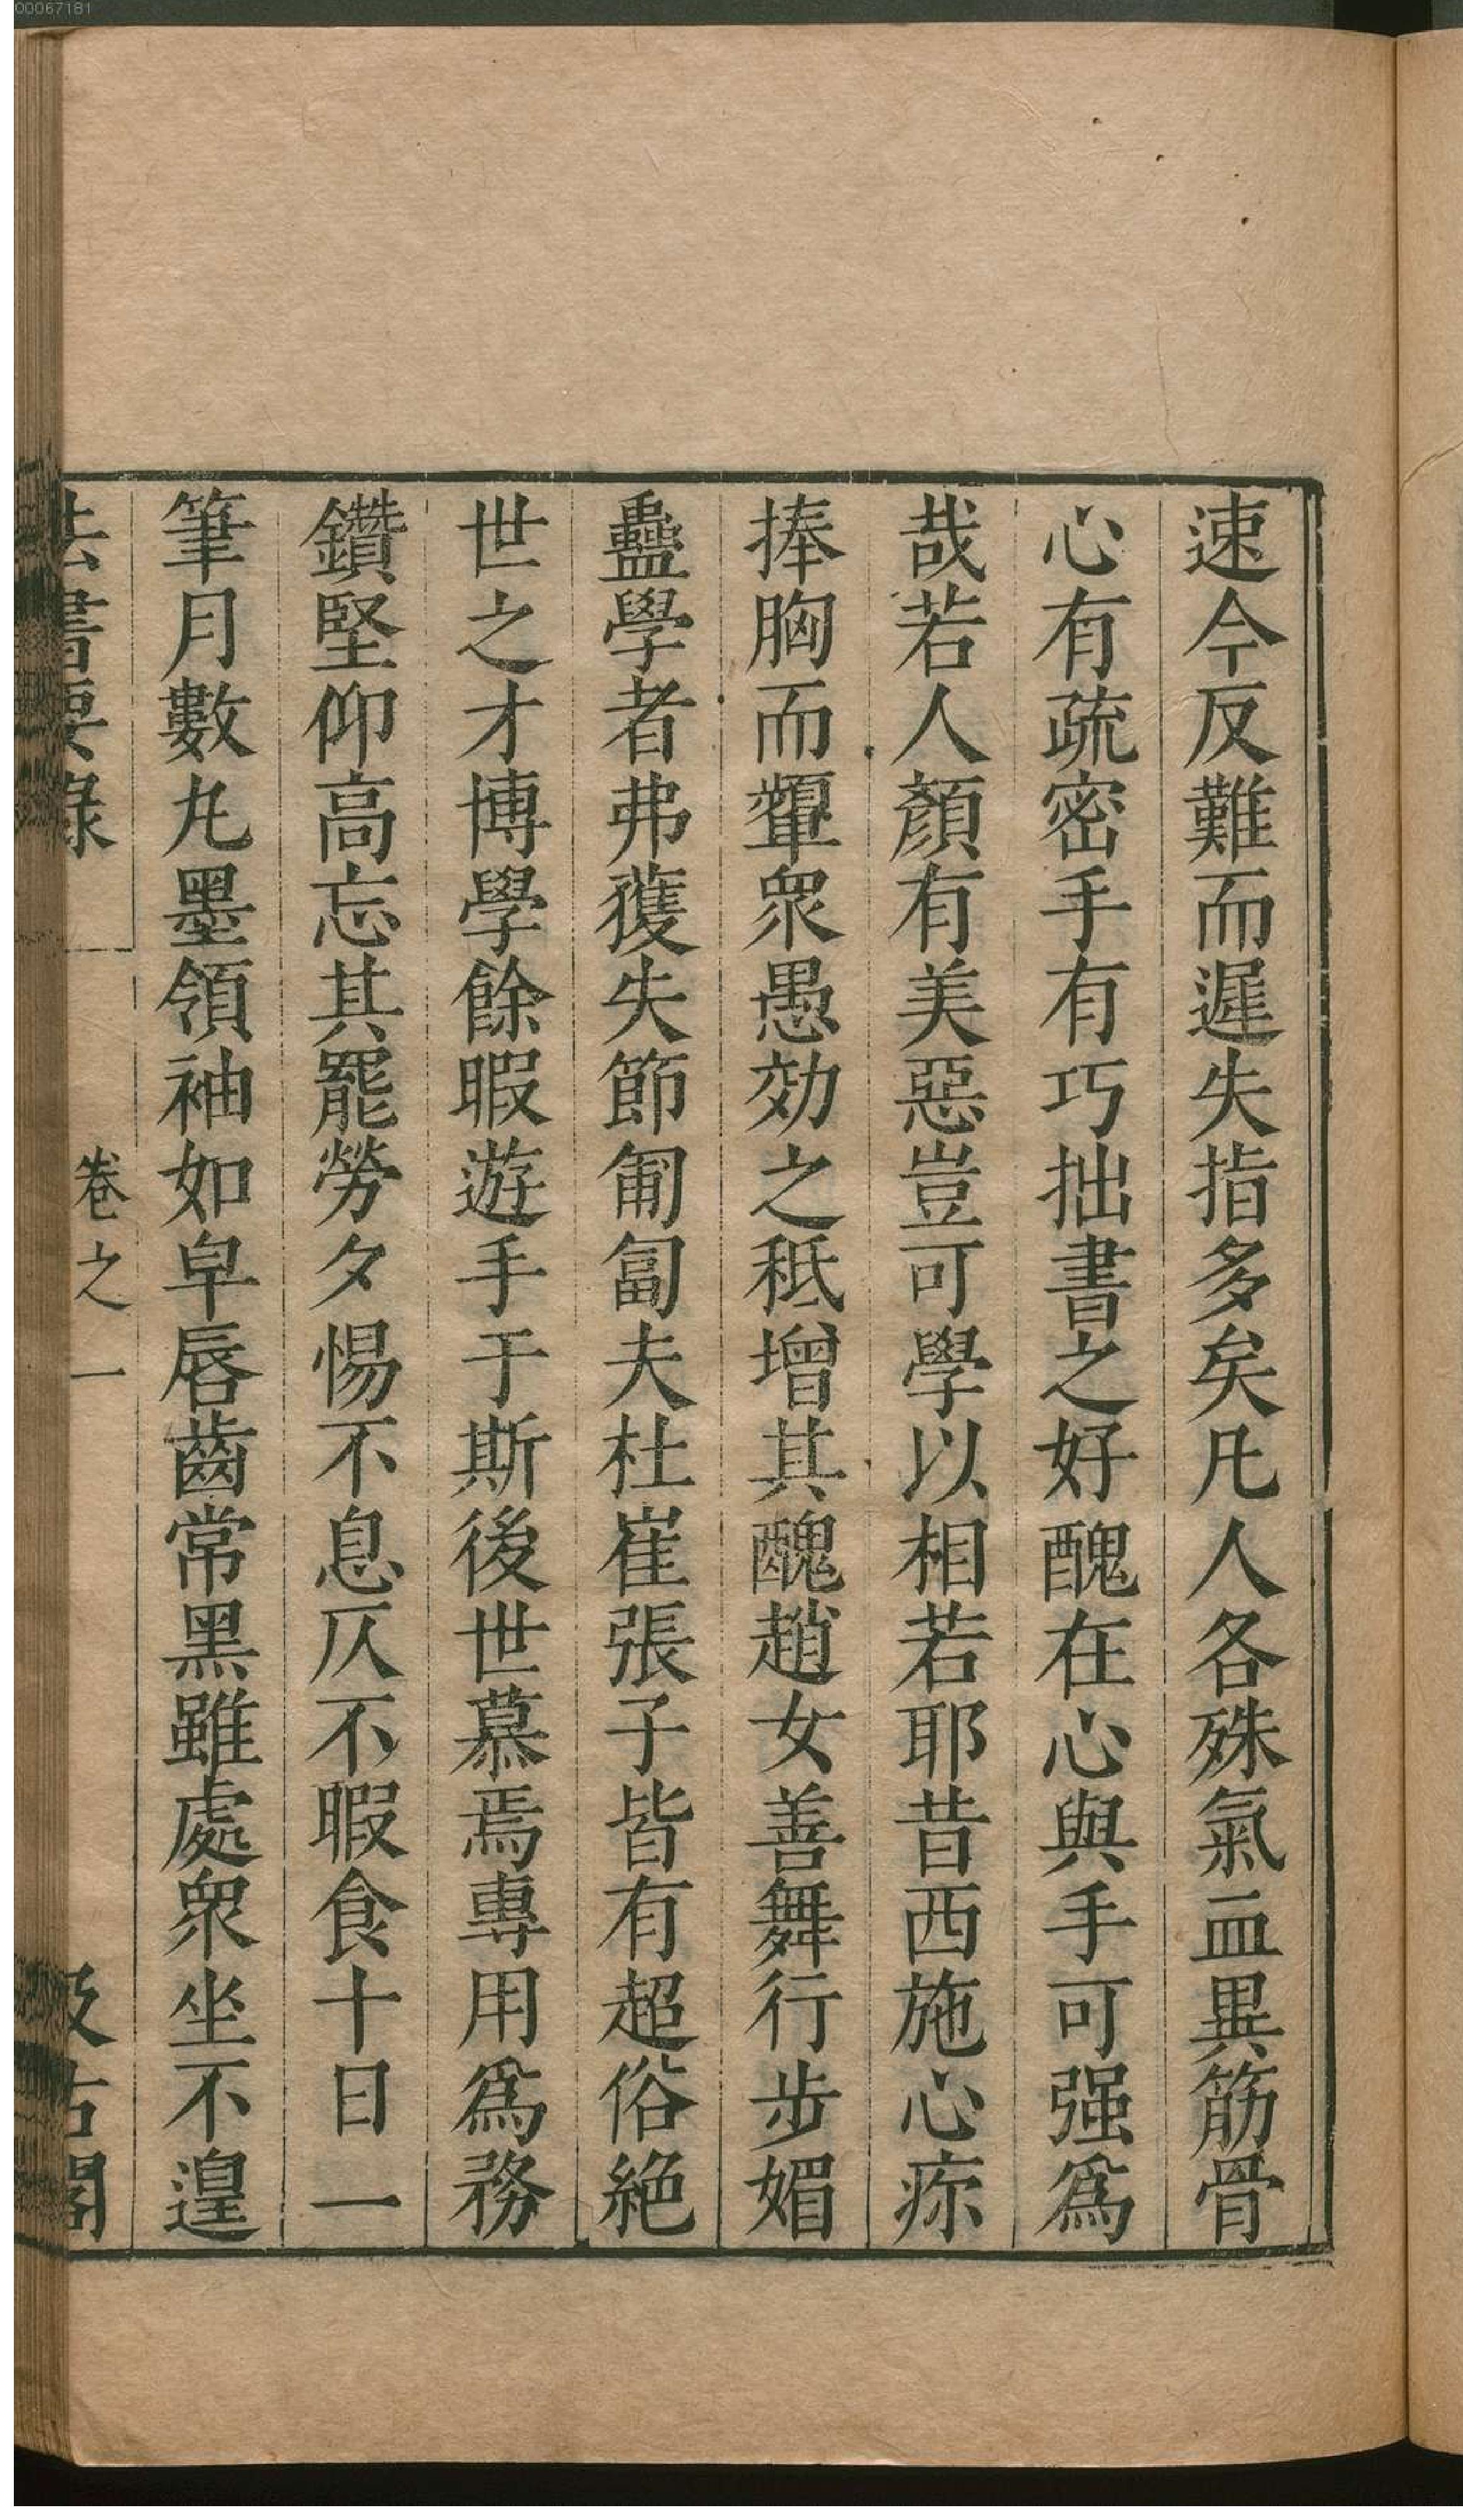 00067181
速今反難而遲失指多矣凡人各殊氣血異筋骨
心有疏密手有巧拙書之好醜在心與手可强爲
哉若人顏有美惡豈可學以相若耶昔西施心疹
捧胸而顰衆愚効之秪增其醜趙女善舞行步媚
蠱學者弗獲失節匍匐夫杜崔張子皆有超俗絶
世之才博學餘暇遊手于斯後世慕焉專用爲務
鑽堅仰高忘其罷勞夕惕不息仄不暇食十日一
筆月數丸墨領袖如皁唇齒常黑雖處衆坐不遑
法書要錄 卷之一 汲古閣